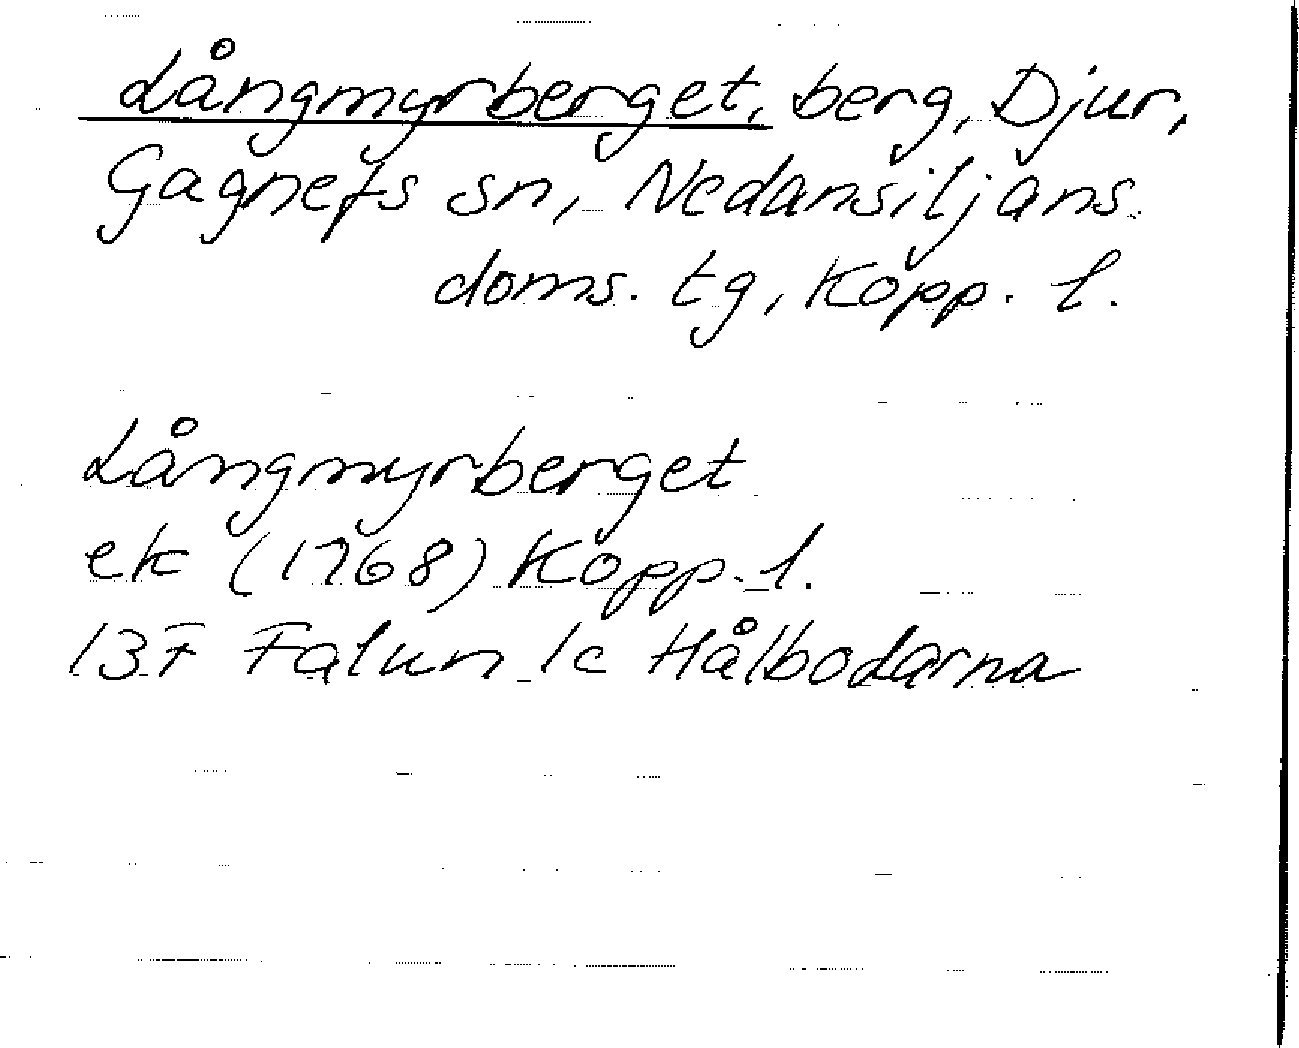 Långmyrberget, berg, Djur,
Gagnefs sn, Nedansiljans
doms. tg, Kopp. l.
Långmyrberget
ek (1768) Kopp. l.
13F Falun 1c Hålbodarna